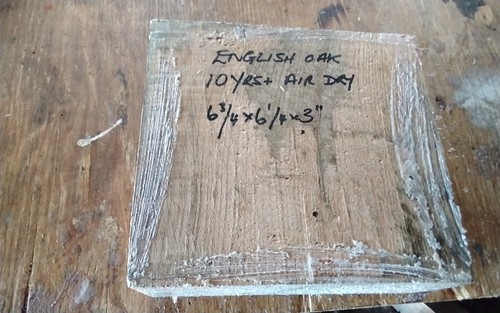 ENGLISH OAK
10YRS+ AIR DRY
6 3/4 x 6 1/4 x 3"